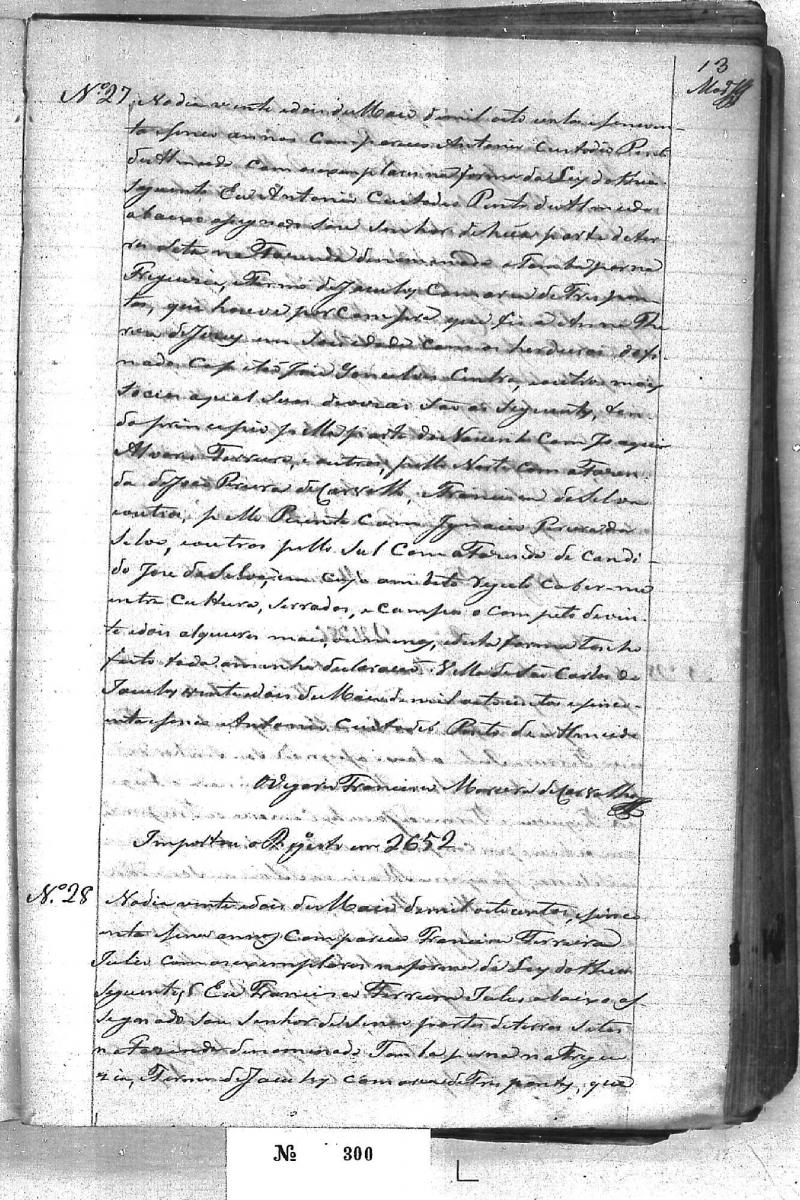 13
Nº27 No dia vinte e dois de Maio de mil oito centos e sincoen-
ta e sinco annos compareceo Antonio Custodio Pinto
de Almeida com os exemplares na forma da Ley do theor
seguinte Eu Antonio Custodio Pinto de Almeida
abaixo asignado sou Senhor de huma parte de ter
ras cita na Fazenda denominada
Freguezia, e Termo de Jacuhy Comarca de Tres pon-
tas, que houve por compra que fiz a Anna The
reza de Jezus em Sociedade com os herdeiros do fi-
nado Capitão José Gonsalves Cintra, e outros mais
Socios a qual suas devizas são as seguintes, ten
do principio pella parte do Nascente com Joaquim
Alvares Ferreira, e outros, pello Norte com a Fazen
da de João Pereira de Carvalho, e Francisco da Silva
e outros, pello Poente com Ignacio Pereira da
Silva, e outros pello Sul com a Fazenda de Candi-
do José da Silva, em cujo ambito caber-me
entre Cultura, Serrados, e campo o computo de vin-
te e dois alqueires mais, ou menos, e desta forma tenho
feito toda a minha declaração. Villa de São Carlos de
Jacuhy vinte e dois de Maio de mil oito centos e sinco-
enta e sinco Antonio Custodio Pinto de Almeida
O Vigario Francisco Moreira de Carvalho
Importou o Registo em 2652
N.º28 No dia vinte e dois de Maio de mil oito centos, e sinco
enta e sinco annos compareceo Francisco Ferreira
Julio com os exemplares na forma da Ley do theor
seguinte Eu Francisco Ferreira Julio abaixo as
signado sou Senhor de sinco partes de terras Sitas
na Fazenda denominada na Fregue
zia, e Termo de Jacuhy comarca de Tres pontas, que
Nº 300